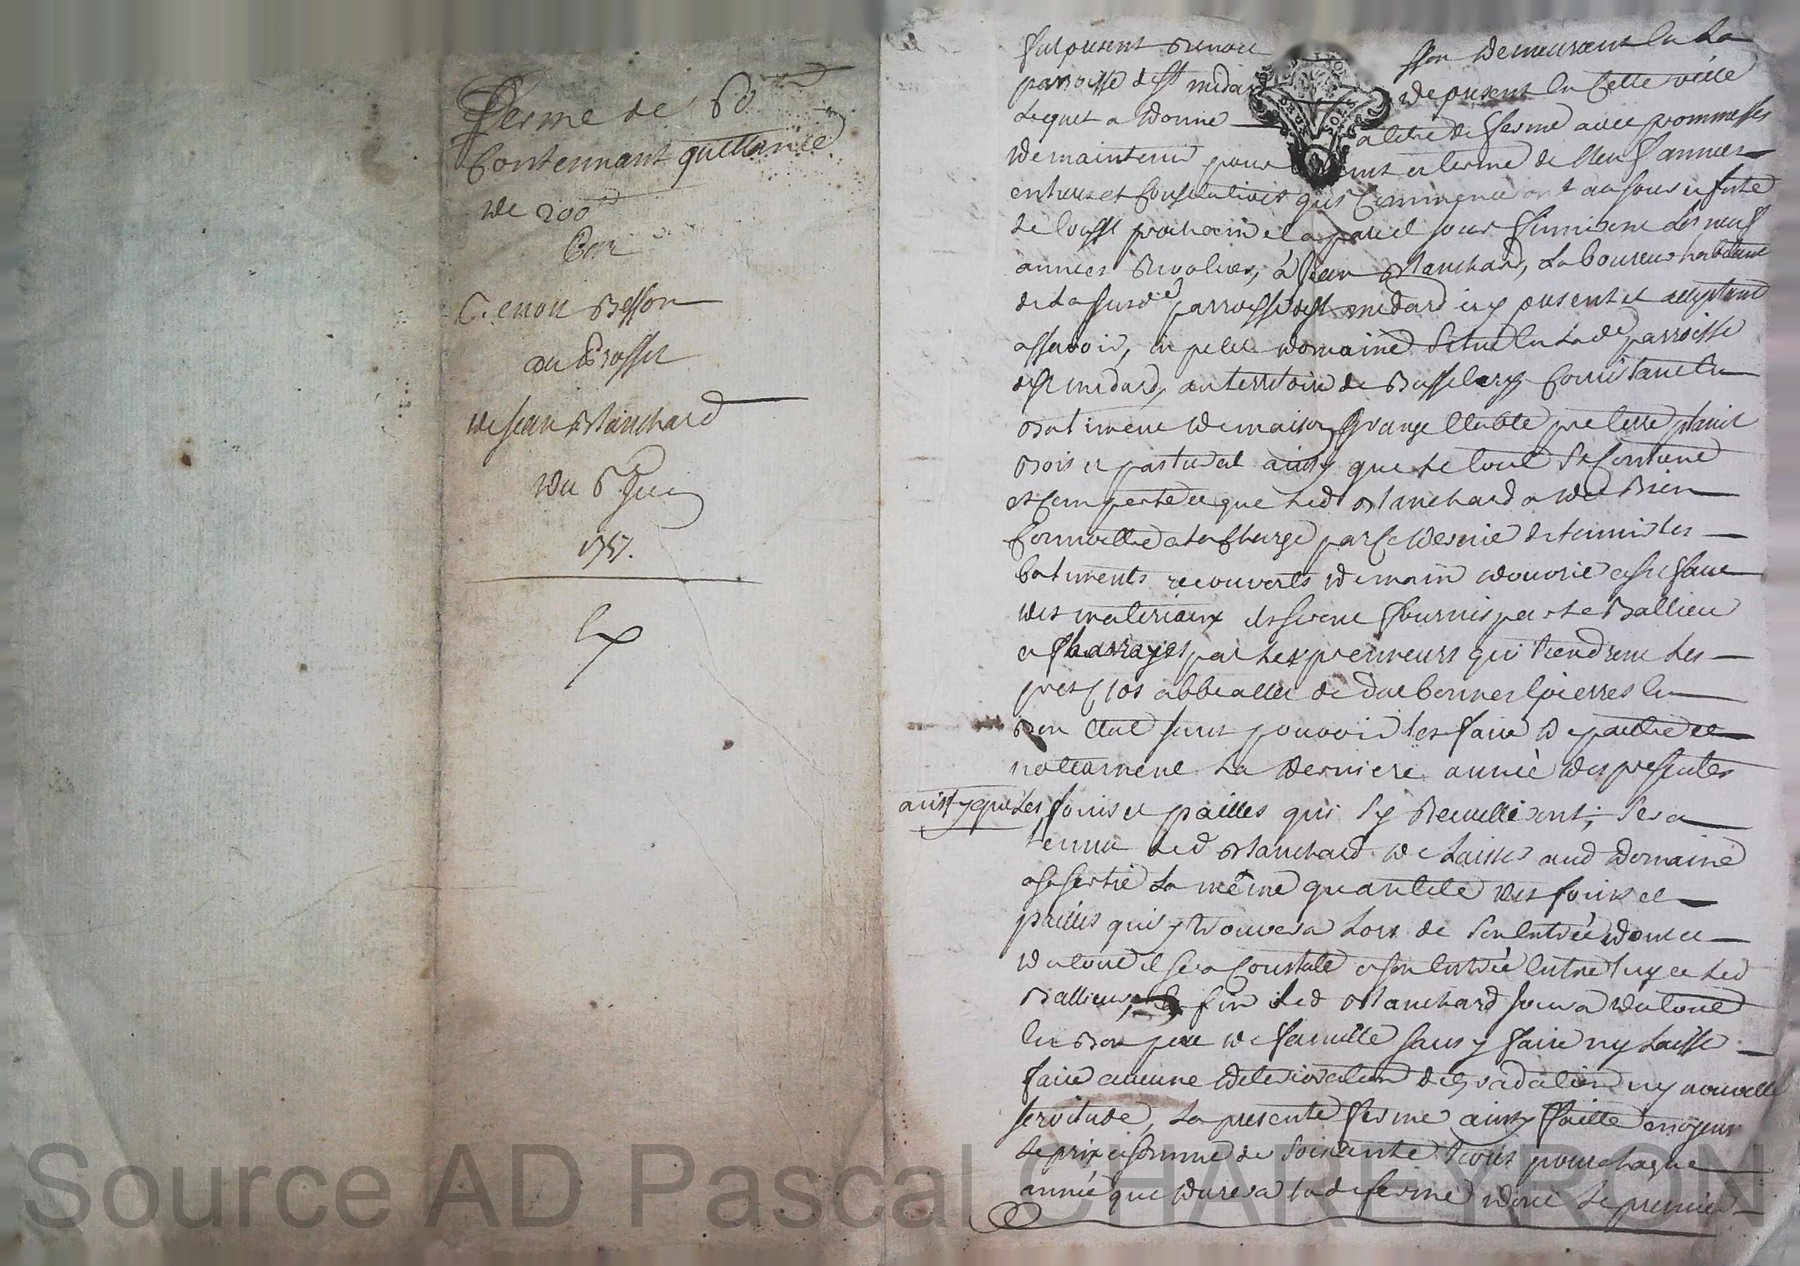 Ferme de 60 ₶
Contennant quittance
de 200 ₶
Par
Besson
au Proffit
de Jean Blanchard
du 6 Juin
1757.
Ex
Fut present demeurant en la
parroisse de St medard de present en cette ville
Lequel a donne a titre de ferme avec prommesses
de maintenir pour et terme de Neuf annees
entieres et consecutives qui commenceront au jour et feste
de prochain et a pareil jour finiront Les neuf
annees Revolues, à Jean Blanchard, Laboureur habitant
de La susd.e parroisse de St medard icy present et acceptant
assavoir, un petit domaine situé en Lad.e parroisse
de St medard, au territoire de Consistant en
Batiment de maison Grange Etable pre terre
Bois et pasturat ainsy que Le tout se Contient
et Comporte et que Led Blanchard a dit Bien
Connoitre a La Charge par Ce dernier de tenir Les
batiments recouverts de main douvrie a ses frais
des materiaux fournis par Le Bailleur
et Charrayes par Le preneur qui tiendra Les
pres Clos en
Bon etat sans pouvoir Les faire depaitre et
notament La derniere année des presentes
ainsy que Les foins et pailles qui s'y Recuilliront; sera
tenu Led Blanchard de Laisser aud Domaine
a sa sortie La même quantité des foins et
pailles qui s'y trouvera Lors de son entrée dont et
du tout il sera Constaté a son entrée entre Luy et Led
Bailleur, fin Led Blanchard jouira du tout
en Bon pere de famille sans y faire ny Laisser
faire aucune deterioration degradation ny nouvelle
servitude, La presente ferme ainsy faitte moyenant
Le prix et somme de soixante Livres pour chaque
année que durera Lad.e ferme dont Le premier
Source AD Pascal CHAREYRON